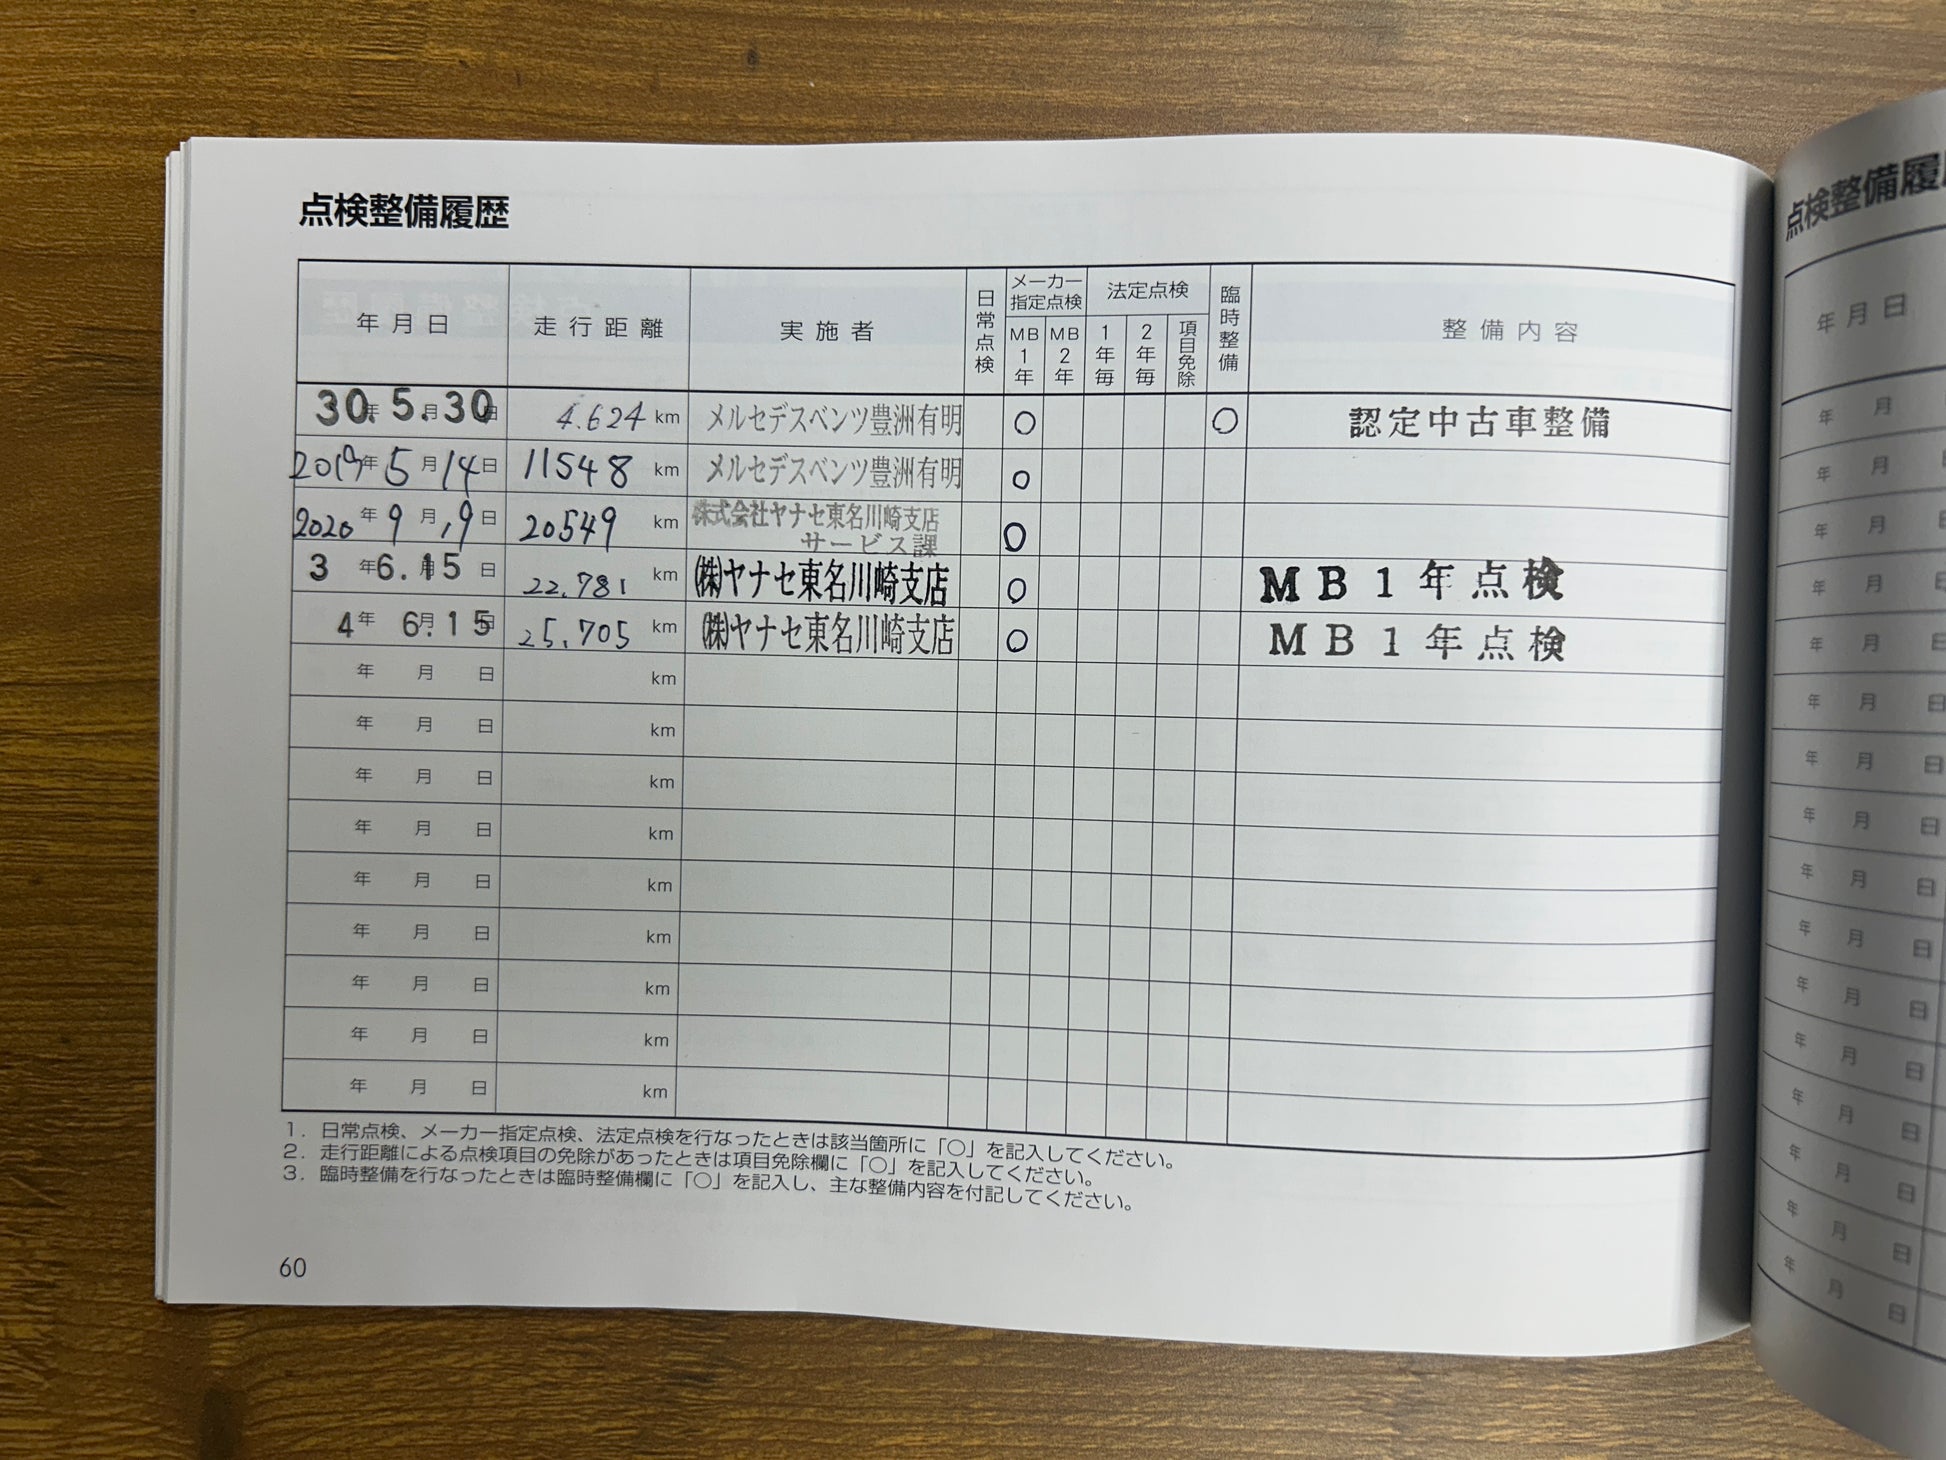 点検整備履歴
年月日 走行距離 実施者 日常点検 メーカー指定点検 MB1年 MB2年 法定点検 1年毎 2年毎 項目免除 臨時整備 整備内容
30年 5月30日 4.624 km メルセデスベンツ豊洲有明 ○ ○ 認定中古車整備
2019年 5月14日 11548 km メルセデスベンツ豊洲有明 ○
2020年 9月 9日 20549 km 株式会社ヤナセ東名川崎支店 サービス課 ○
3年 6.月15日 22.781 km (株)ヤナセ東名川崎支店 ○ MB1年点検
4年 6.月15日 25.705 km (株)ヤナセ東名川崎支店 ○ MB1年点検
年 月 日 km
年 月 日 km
年 月 日 km
年 月 日 km
年 月 日 km
年 月 日 km
年 月 日 km
年 月 日 km
年 月 日 km
1. 日常点検、メーカー指定点検、法定点検を行なったときは該当箇所に「○」を記入してください。
2. 走行距離による点検項目の免除があったときは項目免除欄に「○」を記入してください。
3. 臨時整備を行なったときは臨時整備欄に「○」を記入し、主な整備内容を付記してください。
60
点検整備履
年月日
年 月
年 月 日
年 月 日
年 月 日
年 月 日
年 月 日
年 月 日
年 月 日
年 月 日
年 月 日
年 月 日
年 月 日
年 月 日
年 月 日
年 月 日
年 月 日